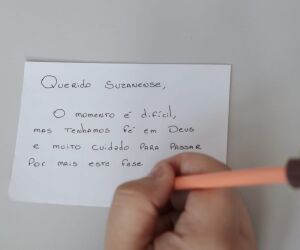 Querido Suzanense,
O momento é difícil,
mas tenhamos fé em Deus
e muito cuidado para passar
por mais este fase